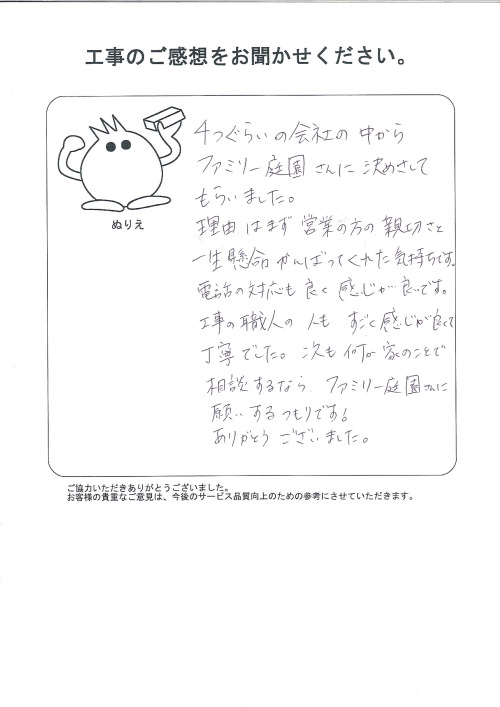 工事のご感想をお聞かせください。
4つぐらいの会社の中から
ファミリー庭園さんに決めさして
もらいました。
ぬりえ
理由はまず営業の方の親切さと
一生懸命がんばってくれた気持ちです。
電話の対応も良く感じが良いです。
工事の職人の人もすごく感じが良くて
丁寧でした。次も何か家のことで
相談するなら、ファミリー庭園さんに
願いするつもりです!
ありがとうございました。
ご協力いただきありがとうございました。
お客様の貴重なご意見は、今後のサービス品質向上のための参考にさせていただきます。